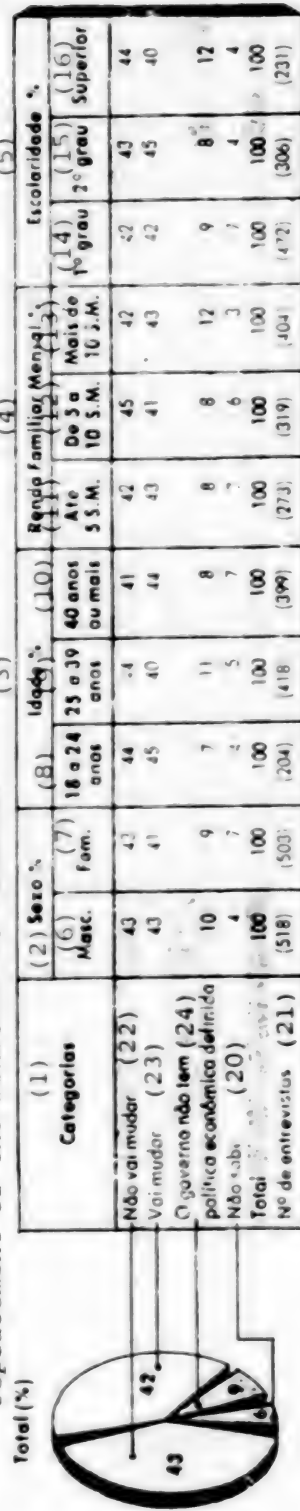 (5)
(4)
(3)
Total (%)
43
42
9
6
(1)
Categorias
(2) Sexo %
Idade %
Renda Familiar Mensal %
Escolaridade %
(6)
Masc.
(7)
Fem.
(8)
18 a 24
anos
25 a 39
anos
(10)
40 anos
ou mais
(11)
Até
5 S.M.
(12)
De 5 a
10 S.M.
(13)
Mais de
10 S.M.
(14)
1º grau
(15)
2º grau
(16)
Superior
Não vai mudar (22) 43 43 44 41 42 45 42 42 43 44
Vai mudar (23) 43 41 45 40 44 43 41 43 42 45 40
O governo não tem (24)
política econômica definida 10 9 7 11 8 8 8 12 9 8 12
Não sabe (20) 4 7 4 5 7 6 3 7 4 4
Total 100 100 100 100 100 100 100 100 100 100 100
Nº de entrevistas (21) (518) (503) (204) (418 (399) (273) (319) (404) (472) (306) (231)